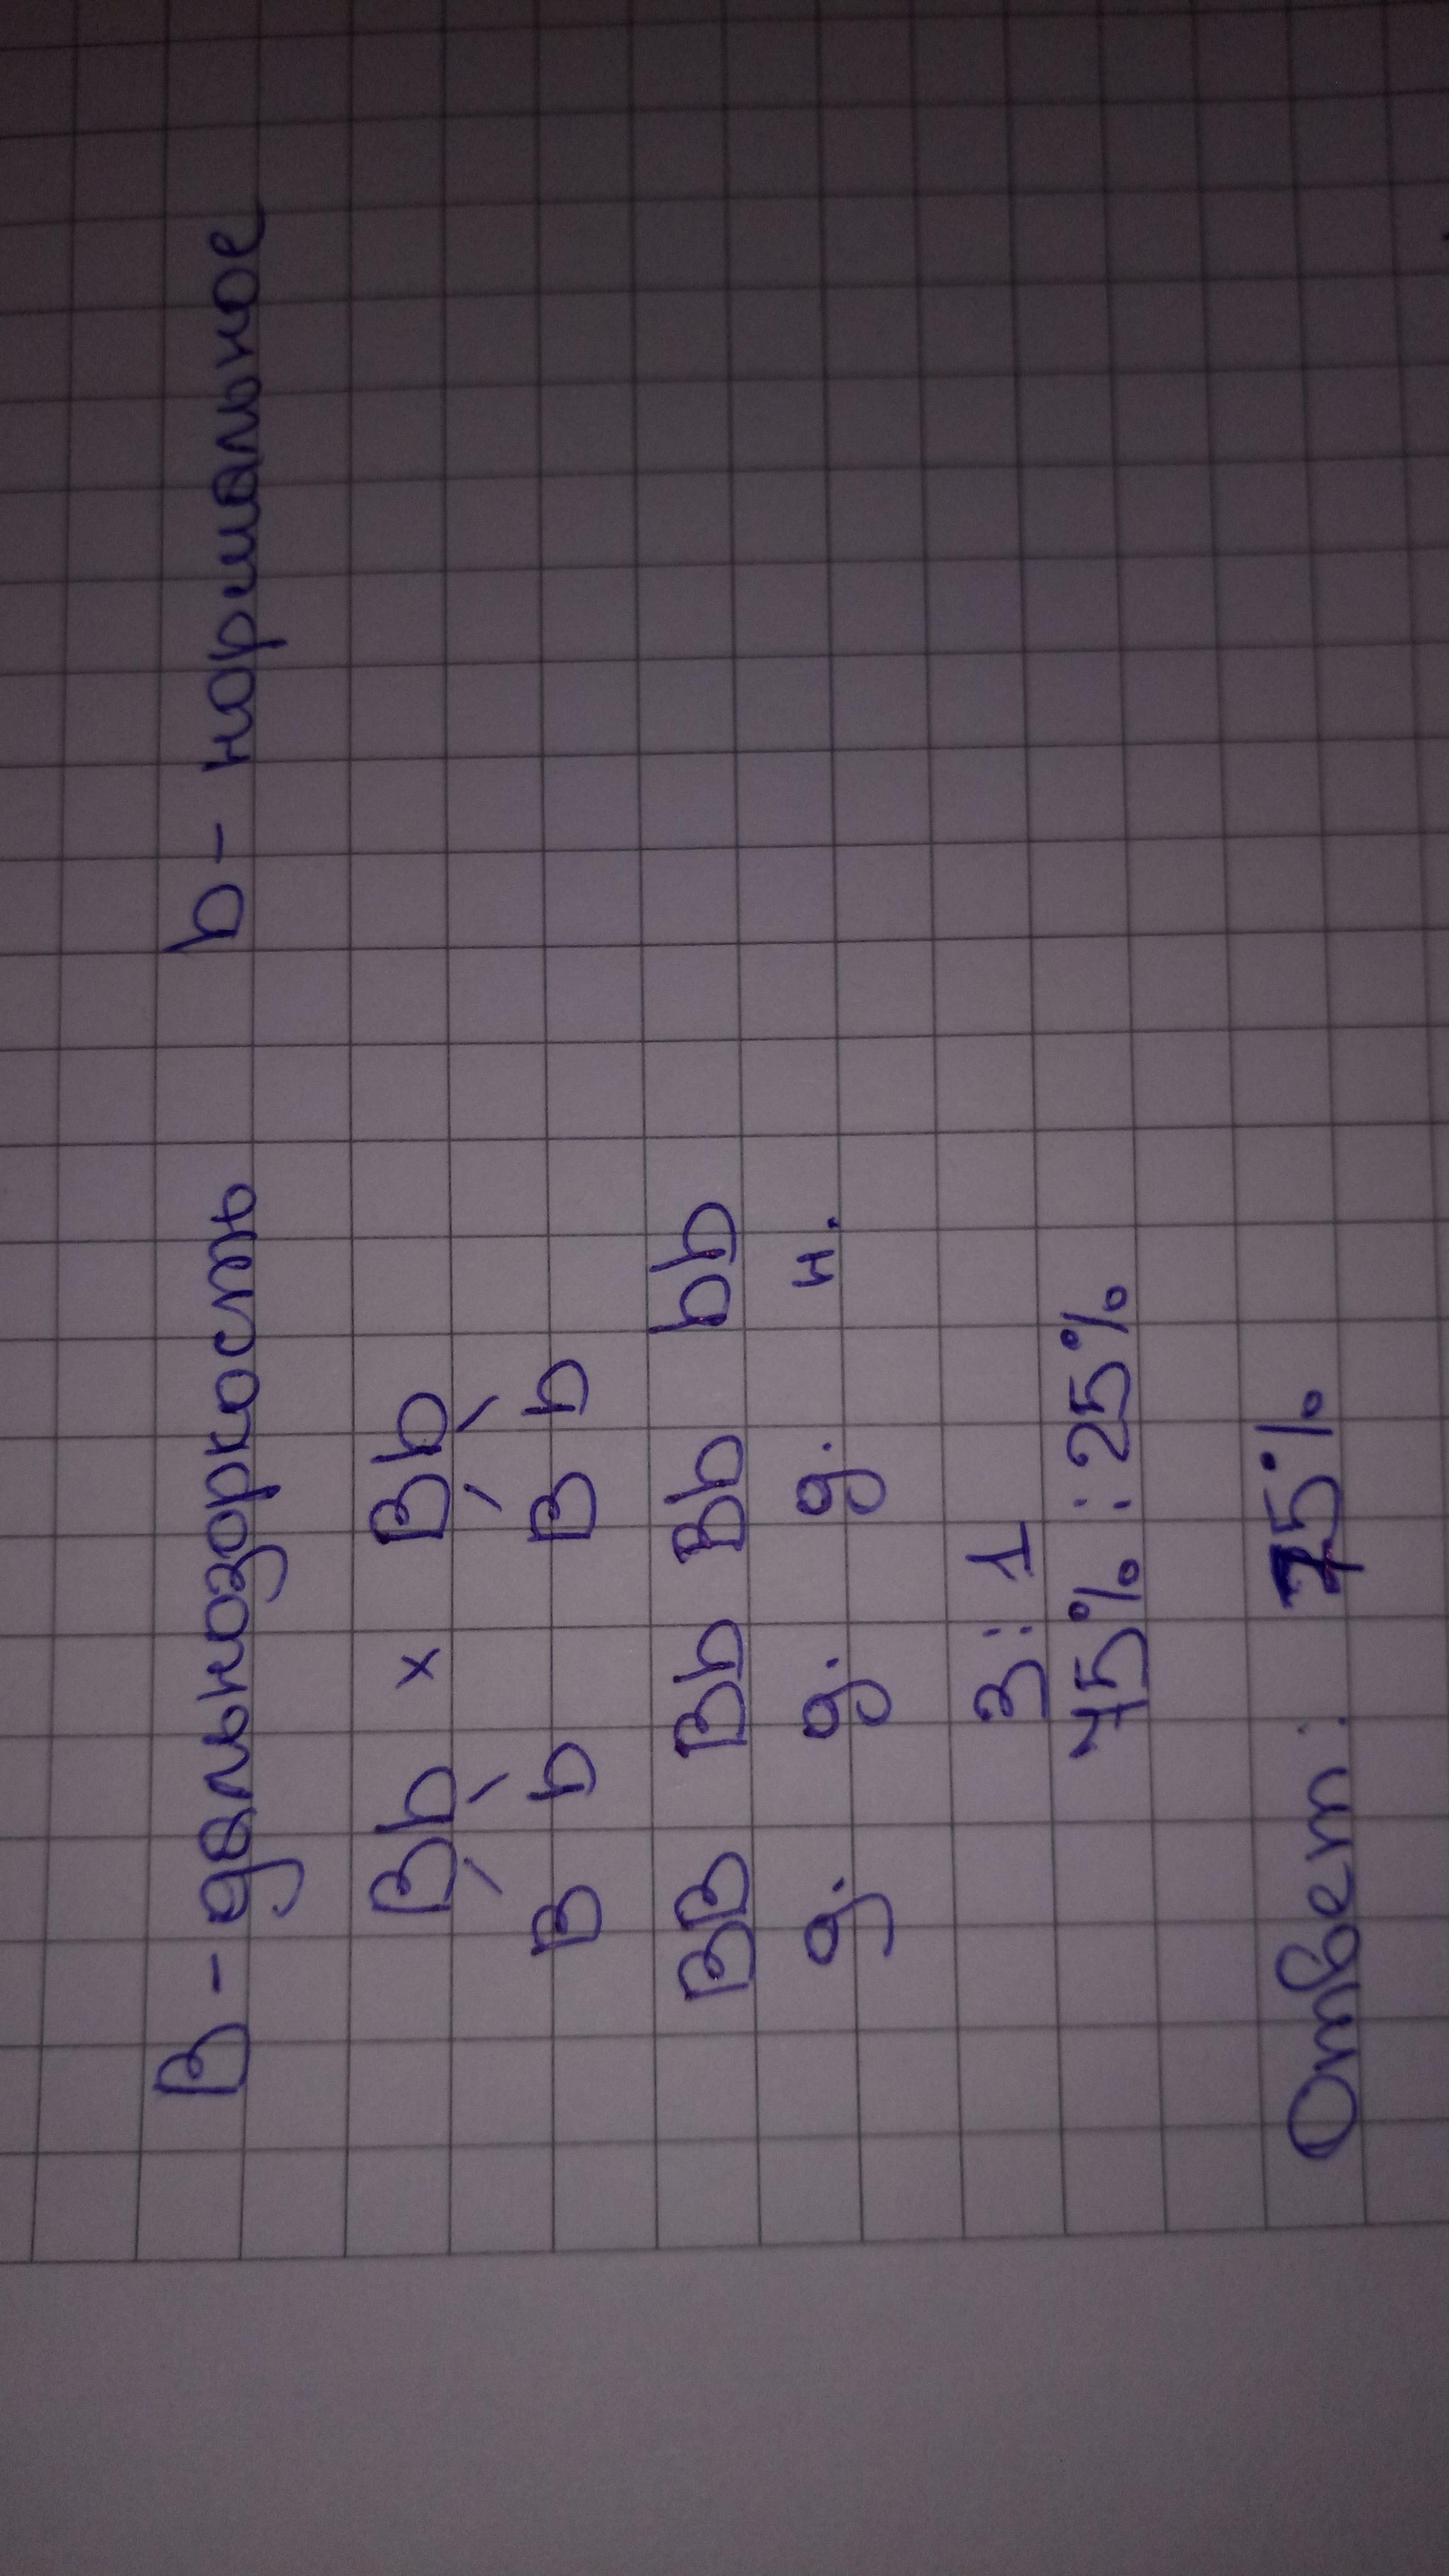 B - дальнозоркость b - нормальное
Bb x Bb
B b B b
BB Bb Bb bb
д. д. д. н.
3 : 1
75% : 25%
Ответ: 75%